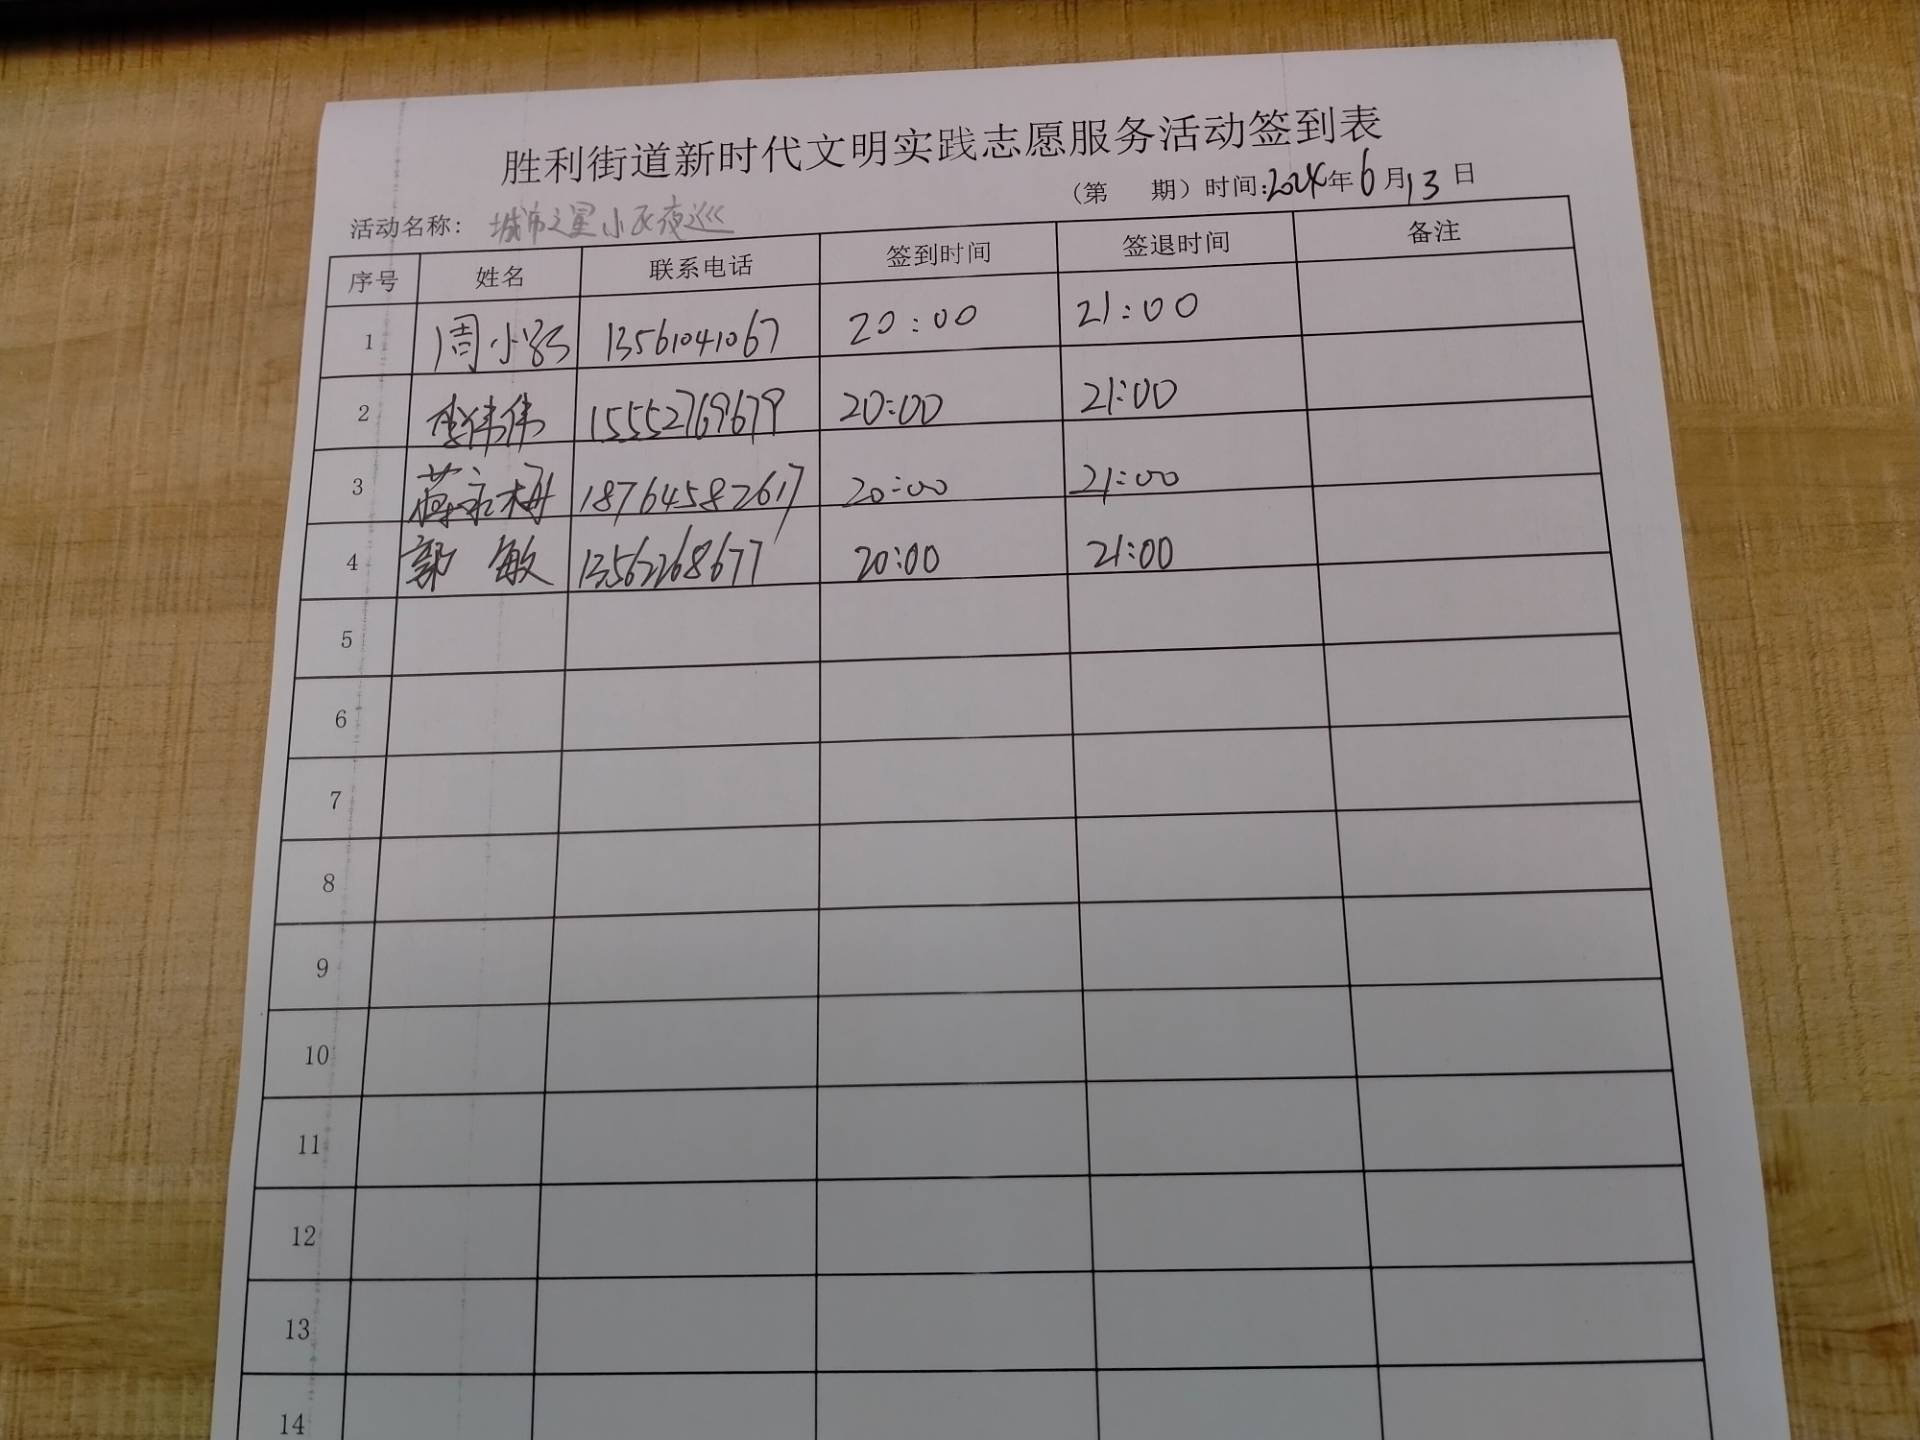 胜利街道新时代文明实践志愿服务活动签到表
(第 期) 时间:2024年6月13日
活动名称: 城市之星小区夜巡
序号 姓名 联系电话 签到时间 签退时间 备注
1 周小 13561041067 20:00 21:00
2 李伟伟 15552769679 20:00 21:00
3 蒋永梅 18764582617 20:00 21:00
4 郭敏 13562268677 20:00 21:00
5
6
7
8
9
10
11
12
13
14